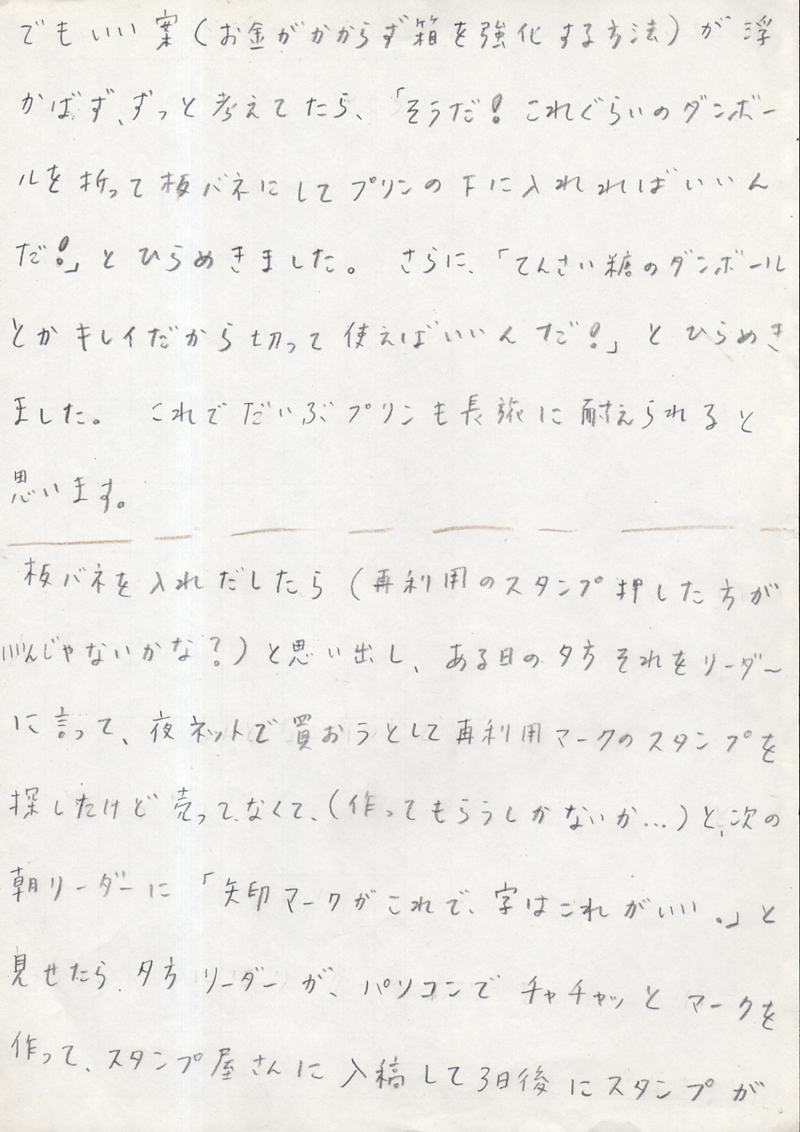 でもいい案(お金がかからず箱を強化する方法)が浮
かばず、ずっと考えてたら、「そうだ!これぐらいのダンボー
ルを折って板バネにしてプリンの下に入れれればいいん
だ!」とひらめきました。 さらに、「てんさい糖のダンボール
とかキレイだから切って使えばいいんだ!」とひらめき
ました。 これでだいぶプリンも長旅に耐えられると
思います。
板バネを入れだしたら(再利用のスタンプ押した方が
いいんじゃないかな?)と思い出し、ある日の夕方それをリーダー
に言って、夜ネットで買おうとして再利用マークのスタンプを
探したけど売ってなくて、(作ってもらうしかないか…)と、次の
朝リーダーに「矢印マークがこれで、字はこれがいい。」と
見せたら、夕方リーダーが、パソコンでチャチャッとマークを
作って、スタンプ屋さんに入稿して3日後にスタンプが